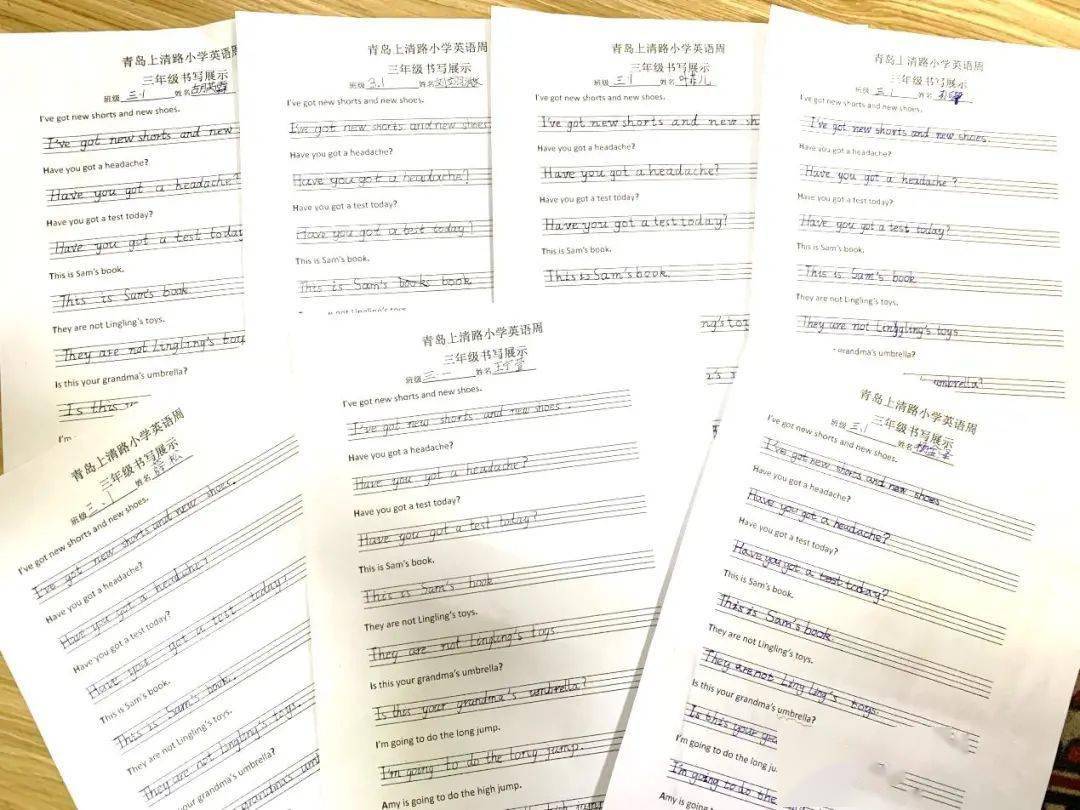 青岛上清路小学英语周
三年级书写展示
班级 三.1 姓名
I've got new shorts and new shoes.
I've got new shorts and new
Have you got a headache?
Have you got a headache?
Have you got a test today?
Have you got a test today
This is Sam's book.
This is Sam's book.
They are not Lingling's toys.
They are not Lingling's toy
Is this your grandma's umbrella?
Is this
I'm
青岛上清路小学英语周
三年级书写展示
班级 3.1 姓名
I've got new shorts and new shoes.
I've got new shorts and new shoes.
Have you got a headache?
Have you got a headache?
Have you got a test today?
Have you got a test today?
This is Sam's book.
This is Sam's books book.
青岛上清路小学英语周
三年级书写展示
班级 三.1 姓名
I've got new shorts and new shoes.
I've got new shorts and new sh
Have you got a headache?
Have you got a headache?
Have you got a test today?
Have you got a test today?
This is Sam's book.
This is Sam's book.
ng's toy
青岛上清路小学英语周
三年级书写展示
班级 三.1 姓名
I've got new shorts and new shoes.
I've got new shorts and new shoes.
Have you got a headache?
Have you got a headache?
Have you got a test today?
Have you got a test today?
This is Sam's book.
This is Sam's book
They are not Lingling's toys.
They are not Linggling's toys
grandma's umbrella?
umbrella?
青岛上清路小学英语周
三年级书写展示
班级 三.1 姓名 薛松
I've got new shorts and new shoes.
I've got new shorts and new shoes.
Have you got a headache?
Have you got a headache?
Have you got a test today?
Have you got a test today?
This is Sam's book.
This is Sam's book.
They are not Lingling's toys.
They are not Lingling's toys.
grandma's um
青岛上清路小学英语周
三年级书写展示
班级 三.一 姓名
I've got new shorts and new shoes.
I've got new shorts and new shoes.
Have you got a headache?
Have you got a headache?
Have you got a test today?
Have you got a test today?
This is Sam's book.
This is Sam's book
They are not Lingling's toys.
They are not Lingling's toys.
Is this your grandma's umbrella?
Is this your grandma's umbrella?
I'm going to do the long jump.
I'm going to do the long jump.
Amy is going to do the high jump.
青岛上清路小学英语周
三年级书写展示
班级 三.1 姓名
I've got new shorts and new shoes.
I've got new shorts and new shoes
Have you got a headache?
Have you got a headache?
Have you got a test today?
Have you got a test today?
This is Sam's book.
This is Sam's book
They are not Lingling's toys.
They are not Lingling's toys.
Is this your grandma's umbrella?
Is this your gra
I'm going to do the long ju
I'm going to do the
Amy is going to do the